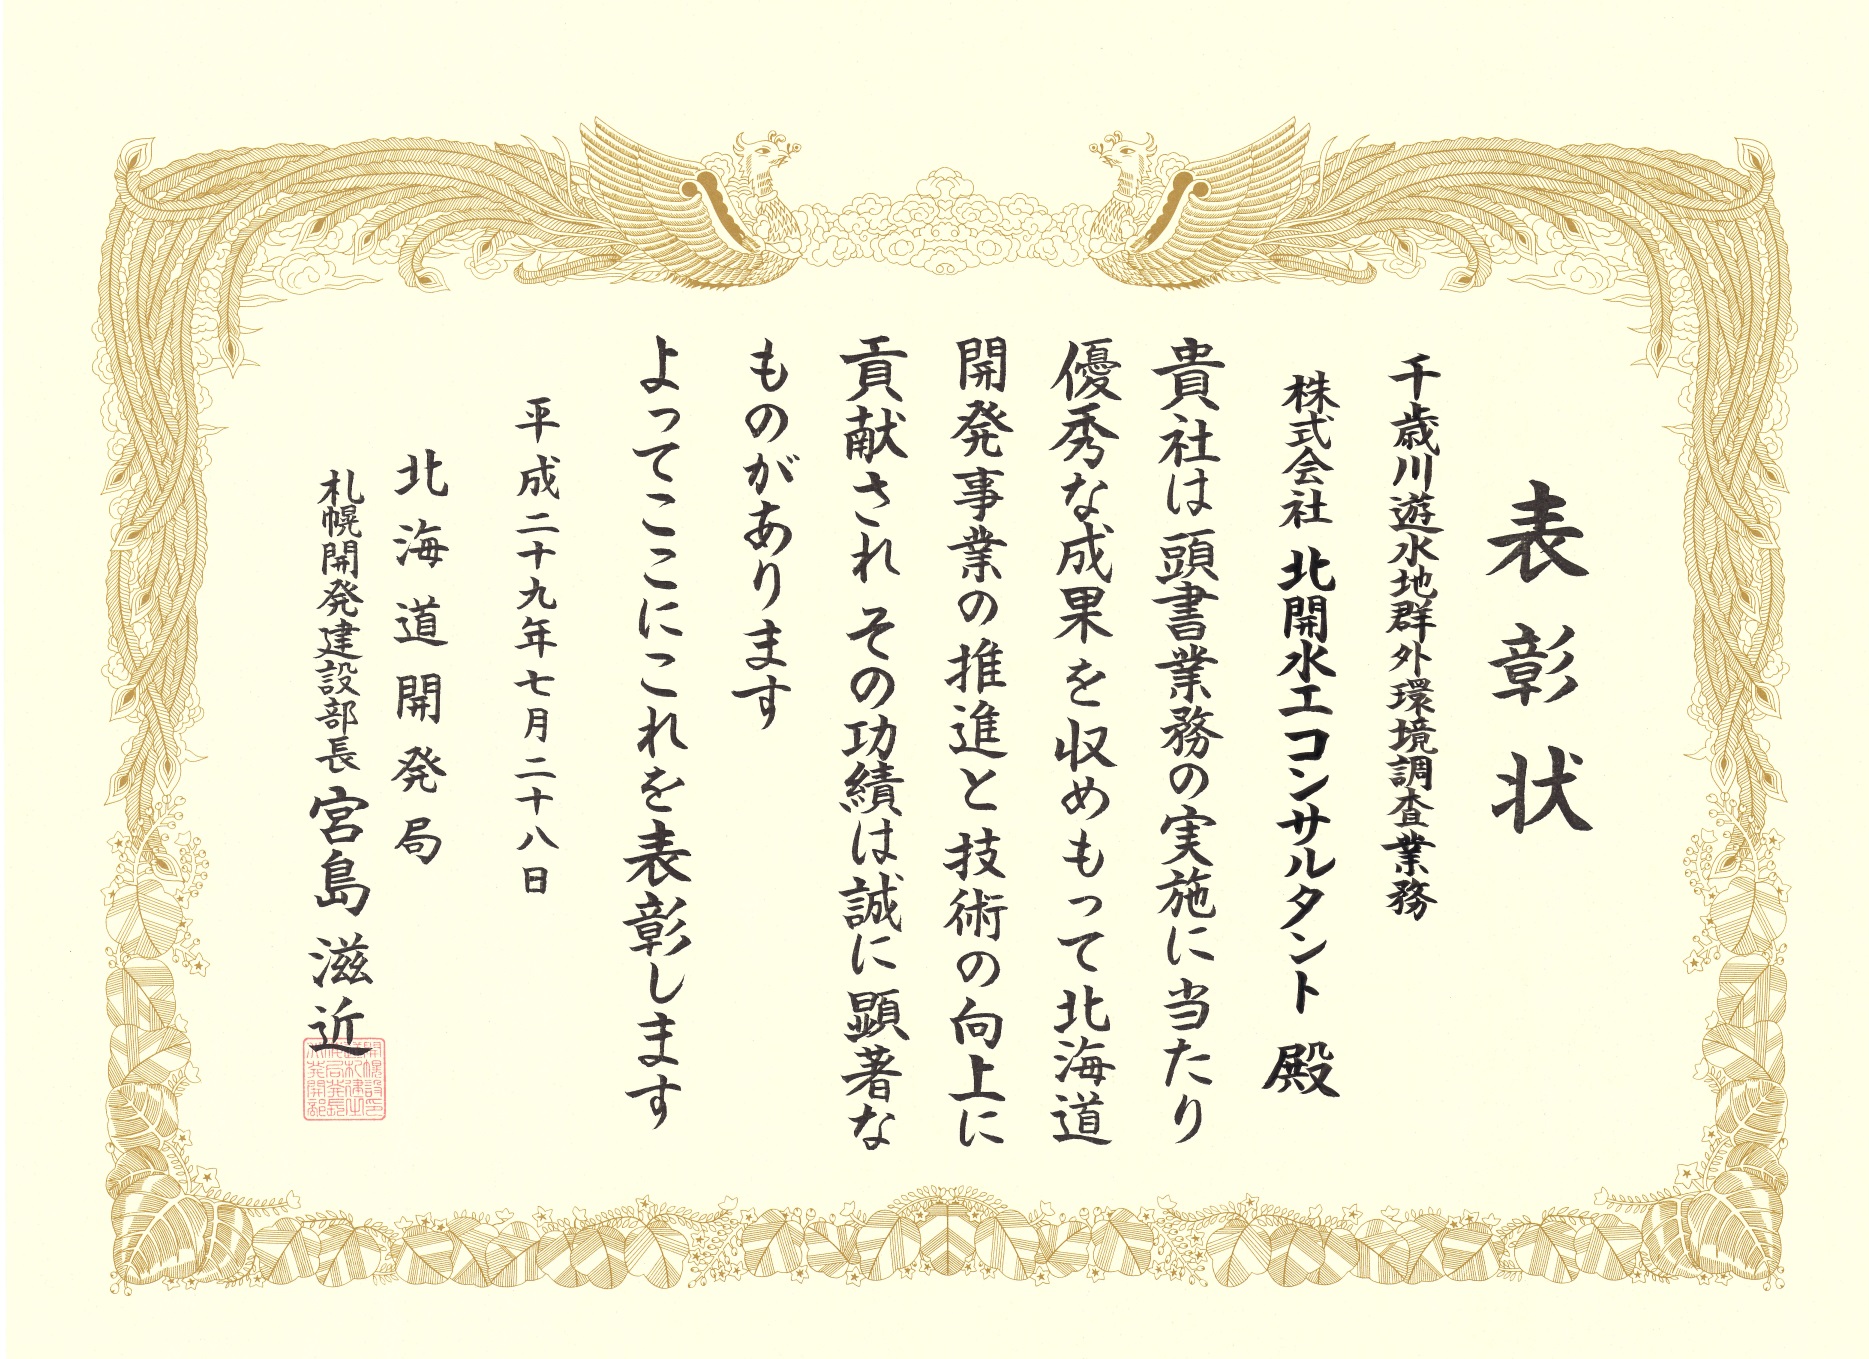 表彰状
千歳川遊水地群外環境調査業務
株式会社 北開水工コンサルタント 殿
貴社は頭書業務の実施に当たり
優秀な成果を収めもって北海道
開発事業の推進と技術の向上に
貢献されその功績は誠に顕著な
ものがあります
よってここにこれを表彰します
平成二十九年七月二十八日
北海道開発局
札幌開発建設部長 宮島滋近